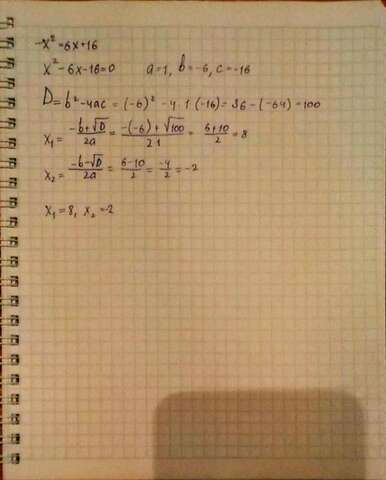 -x² = 6x+16
x² - 6x - 16 = 0 a=1, b=-6, c=-16
D = b² - 4ac = (-6)² - 4·1(-16) = 36 - (-64) = 100
x₁ = (-b+√D)/2a = (-(-6)+√100)/2·1 = (6+10)/2 = 8
x₂ = (-b-√D)/2a = (6-10)/2 = -4/2 = -2
x₁ = 8, x₂ = -2